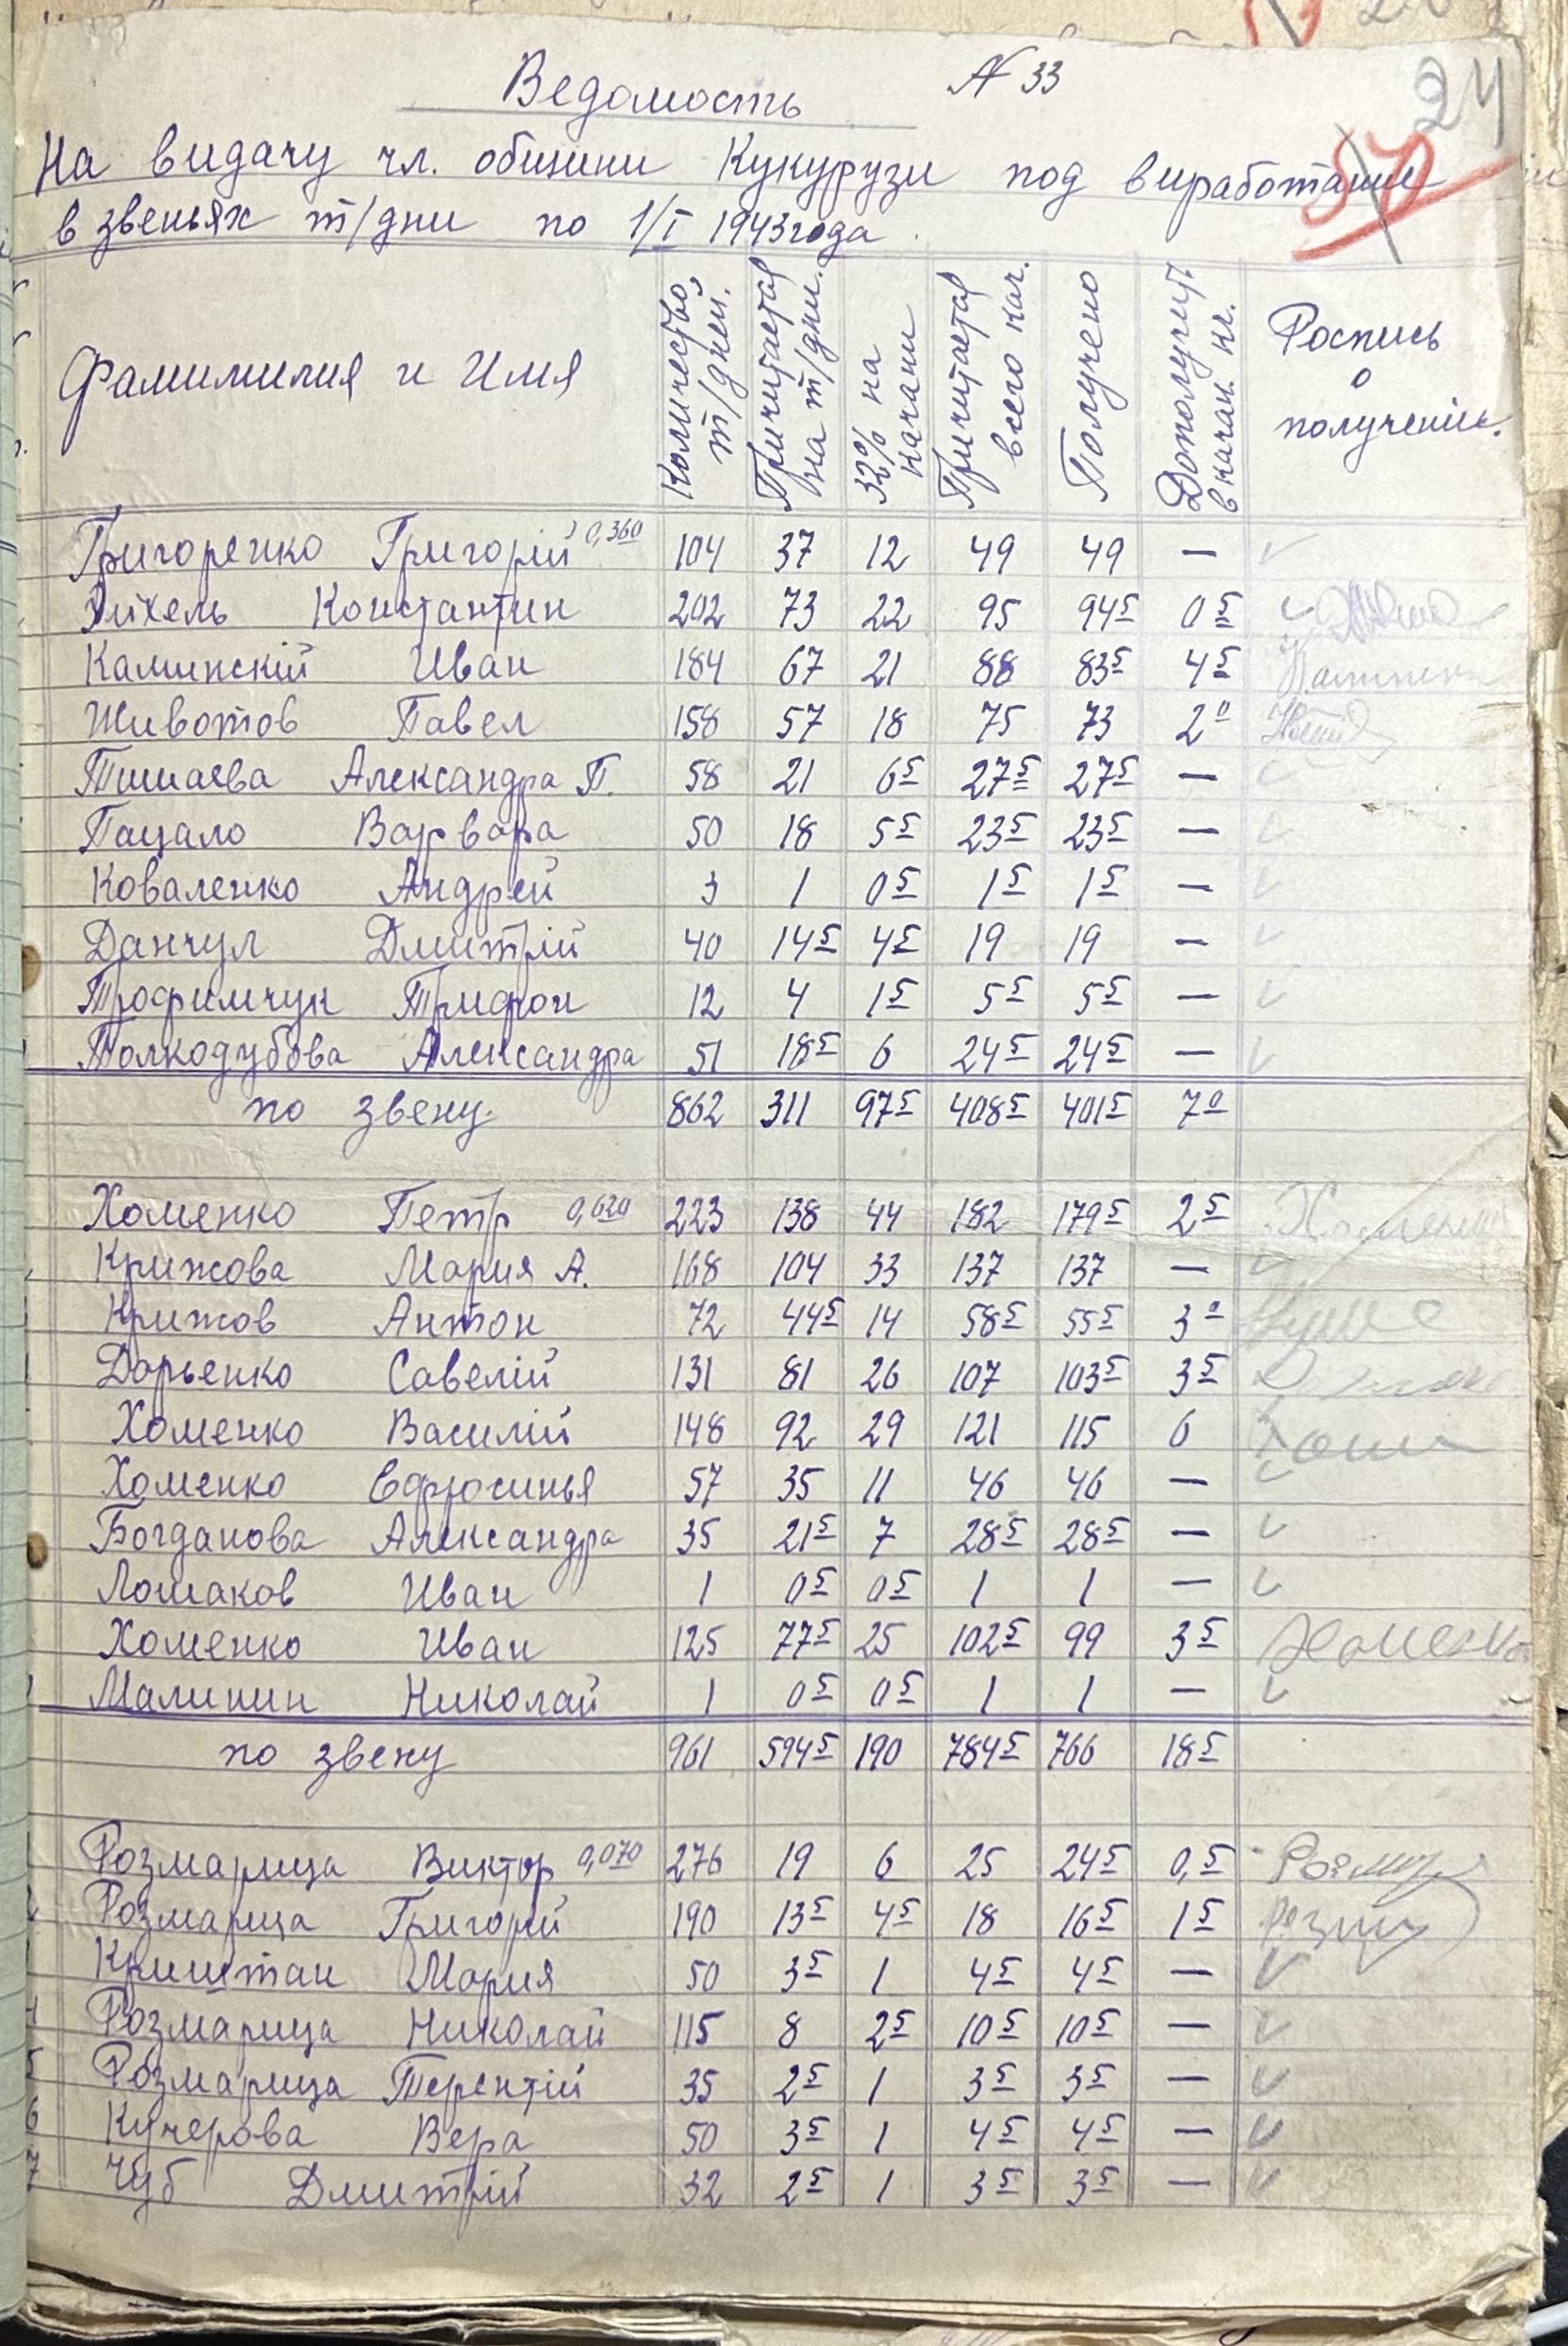 Ведомость № 33
24
На видачу чл. общини Кукурузи под виработание
в звеньях т/дни по 1/I 1943 года
Фамимилия и Имя Количество т/дней. Причитается на т/дни. 32% на качани Причитается всего кач. Получено Дополучит. в качан. кг. Роспись о получении.
Григоренко Григорій 0,360 104 37 12 49 49 —
Михель Константин 202 73 22 95 94 5 0 5
Каминскій Иван 184 67 21 88 83 5 4 5
Животов Павел 158 57 18 75 73 2 0
Тишаева Александра П. 58 21 6 5 27 5 27 5 —
Пацало Варвара 50 18 5 5 23 5 23 5 —
Коваленко Андрей 3 1 0 5 1 5 1 5 —
Данчул Дмитрій 40 14 5 4 5 19 19 —
Трофимчук Трифон 12 4 1 5 5 5 5 5 —
Толкодубова Александра 51 18 5 6 24 5 24 5 —
по звену. 862 311 97 5 408 5 401 5 7 0
Хоменко Петр 0,620 223 138 44 182 179 5 2 5 Хоменко
Крижова Мария А. 168 104 33 137 137 —
Крижов Антон 72 44 5 14 58 5 55 5 3 0
Дарьенко Савелій 131 81 26 107 103 5 3 5
Хоменко Василій 148 92 29 121 115 6
Хоменко Ефросинья 57 35 11 46 46 —
Богданова Александра 35 21 5 7 28 5 28 5 —
Лошаков Иван 1 0 5 0 5 1 1 —
Хоменко Иван 125 77 5 25 102 5 99 3 5 Хоменко
Малинин Николай 1 0 5 0 5 1 1 —
по звену 961 594 5 190 784 5 766 18 5
Розмарица Виктор 0,070 276 19 6 25 24 5 0, 5
Розмарица Григорий 190 13 5 4 5 18 16 5 1 5
Криштан Мария 50 3 5 1 4 5 4 5 —
Розмарица Николай 115 8 2 5 10 5 10 5 —
5 Розмарица Терентій 35 2 5 1 3 5 3 5 —
6 Кучерова Вера 50 3 5 1 4 5 4 5 —
7 Чуб Дмитрій 32 2 5 1 3 5 3 5 —